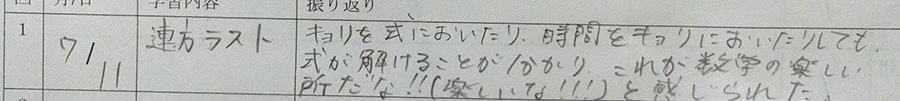 回 月/日 学習内容 振り返り
1 7/11 連方ラスト キョリを式においたり、時間をキョリにおいたりしても、
式が解けることが分かり、これが数学の楽しい
所だな!!(楽しいな!!!)と感じられた。